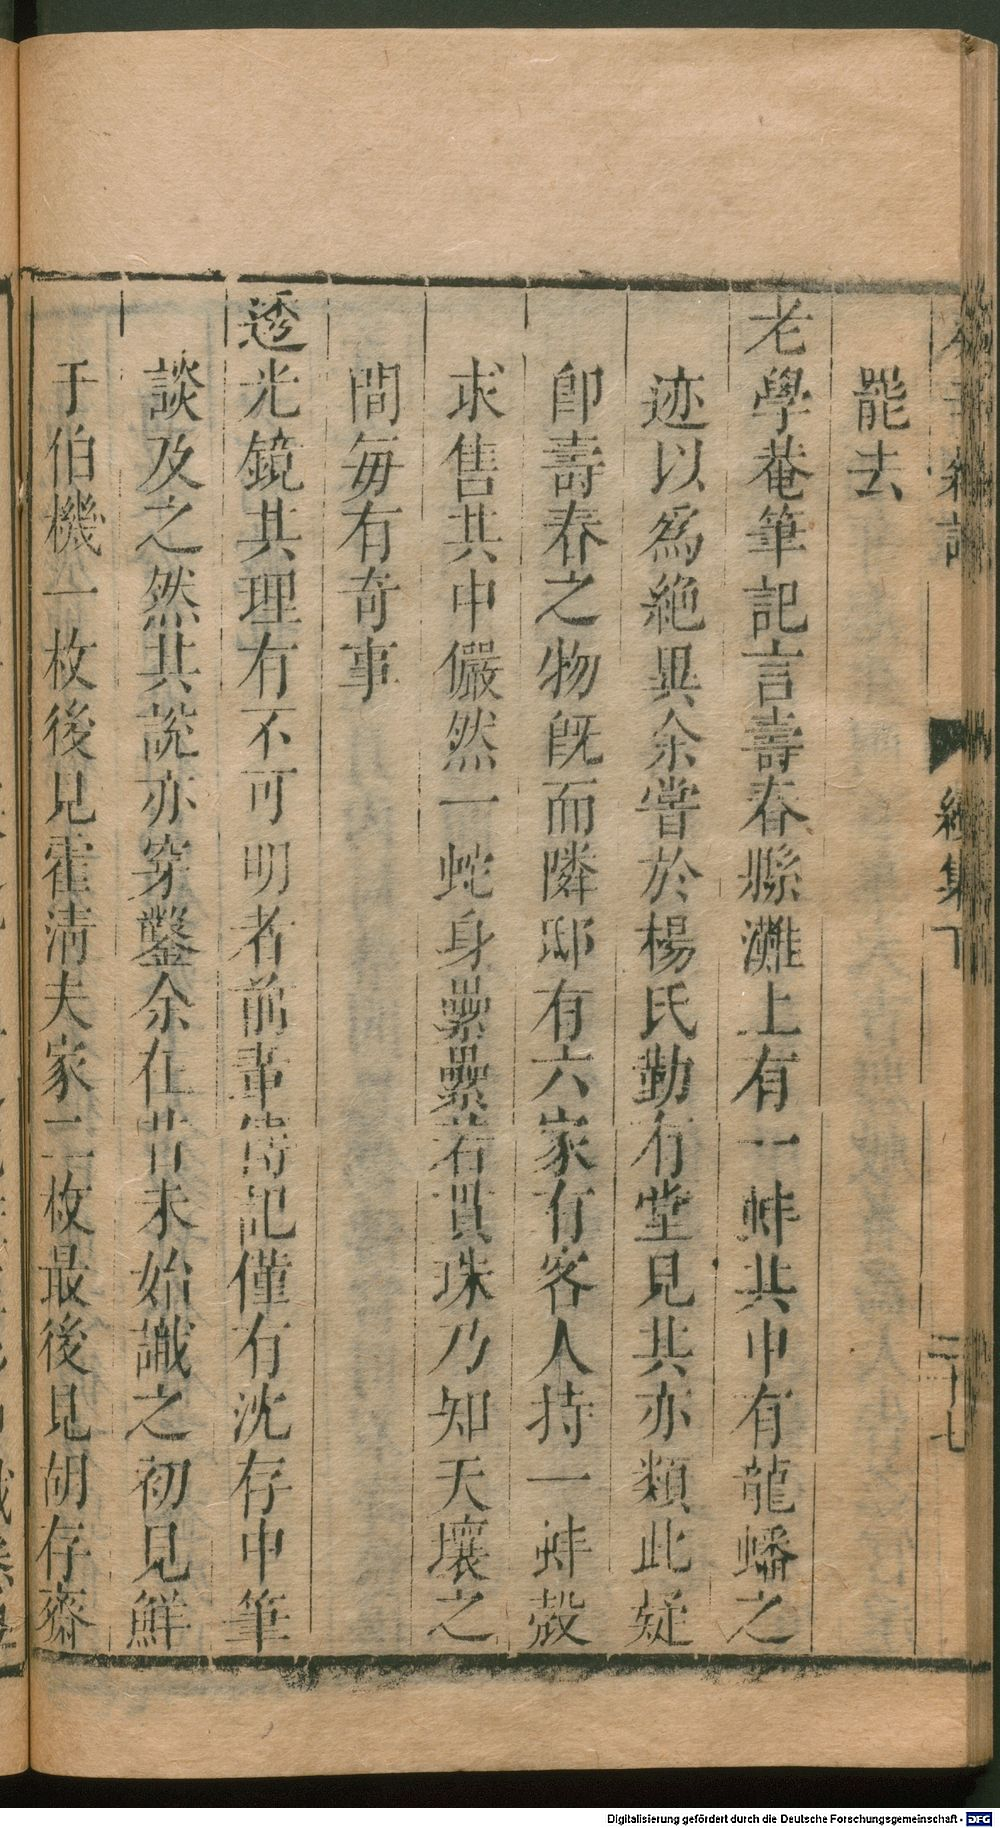 罷去
老學菴筆記言壽春縣灘上有一蚌其中有龍蟠之
迹以爲絶異余嘗於楊氏勤有堂見其亦類此疑
卽壽春之物旣而隣邸有六家有客人持一蚌殻
求售其中儼然一蛇身纍纍若貫珠乃知天壤之
間每有奇事
透光鏡其理有不可明者前軰傳記僅有沈存中筆
談及之然其說亦穿鑿余在昔未始識之初見鮮
于伯機一枚後見霍淸夫家二枚最後見胡存齋
續集下
二十七
Digitalisierung gefördert durch die Deutsche Forschungsgemeinschaft - DFG